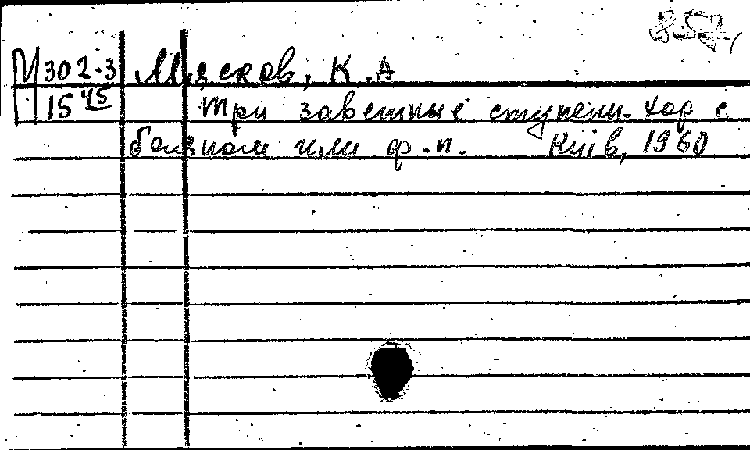 М 302-3 Мясков, К.А
15 45 Три заветные ступени. Хор с
баяном или ф.-п. Київ, 1960